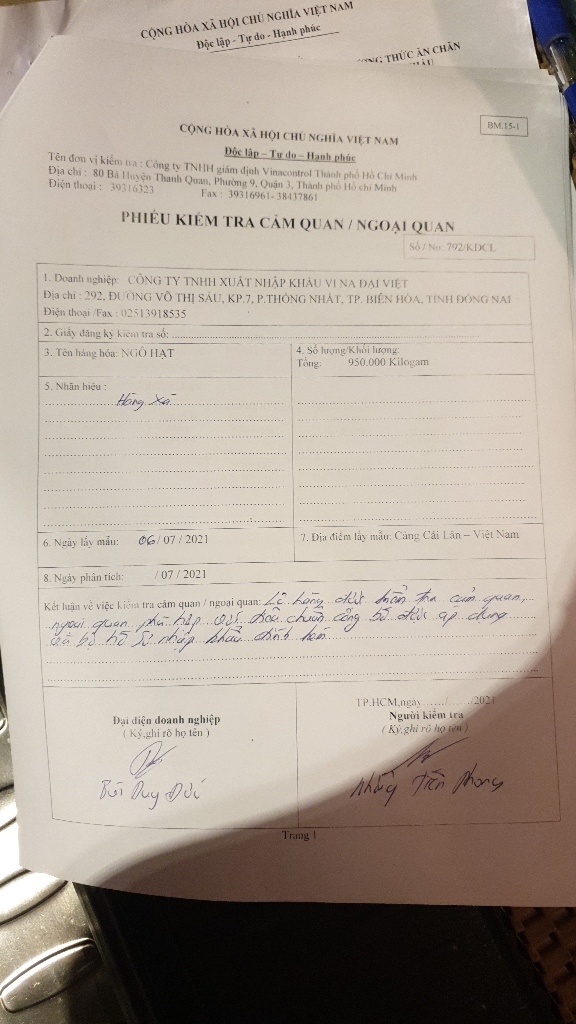 CỘNG HÒA XÃ HỘI CHỦ NGHĨA VIỆT NAM
Độc lập - Tự do - Hạnh phúc
THỨC ĂN CHĂN
BM.15-1
CỘNG HÒA XÃ HỘI CHỦ NGHĨA VIỆT NAM
Độc lập – Tự do – Hạnh phúc
Tên đơn vị kiểm tra : Công ty TNHH giám định Vinacontrol Thành phố Hồ Chí Minh
Địa chỉ : 80 Bà Huyện Thanh Quan, Phường 9, Quận 3, Thành phố Hồ chí Minh
Điện thoại : 39316323 Fax : 39316961- 38437861
PHIẾU KIỂM TRA CẢM QUAN / NGOẠI QUAN
Số / No: 792/KDCL
1. Doanh nghiệp: CÔNG TY TNHH XUẤT NHẬP KHẨU VI NA ĐẠI VIỆT
Địa chỉ : 292, ĐƯỜNG VÕ THỊ SÁU, KP.7, P.THỐNG NHẤT, TP. BIÊN HÒA, TỈNH ĐỒNG NAI
Điện thoại /Fax : 02513918535
2. Giấy đăng ký kiểm tra số:
3. Tên hàng hóa: NGÔ HẠT
4. Số lượng/Khối lượng:
Tổng: 950.000 Kilogam
5. Nhãn hiệu :
Hàng Xá
6. Ngày lấy mẫu: 06/ 07 / 2021
7. Địa điểm lấy mẫu: Cảng Cái Lân – Việt Nam
8. Ngày phân tích: / 07 / 2021
Kết luận về việc kiểm tra cảm quan / ngoại quan: Lô hàng được kiểm tra cảm quan,
ngoại quan phù hợp với tiêu chuẩn công bố được áp dụng
và bộ hồ sơ nhập khẩu đính kèm
Đại diện doanh nghiệp
( Ký,ghi rõ họ tên )
Bùi Duy Đức
TP.HCM,ngày ...../...../2021
Người kiểm tra
( Ký,ghi rõ họ tên )
Tiến Phong
Trang 1